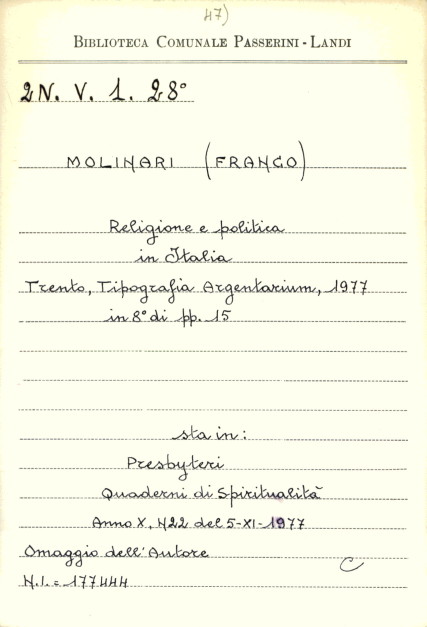 47)
BIBLIOTECA COMUNALE PASSERINI-LANDI
2N. V. 1. 28°
MOLINARI (FRANCO)
Religione e politica
in Italia
Trento, Tipografia Argentarium, 1977
in 8° di pp. 15
sta in:
Presbyteri
Quaderni di Spiritualità
Anno X, N22 del 5-XI-1977
Omaggio dell'Autore
C
N.I. = 177444